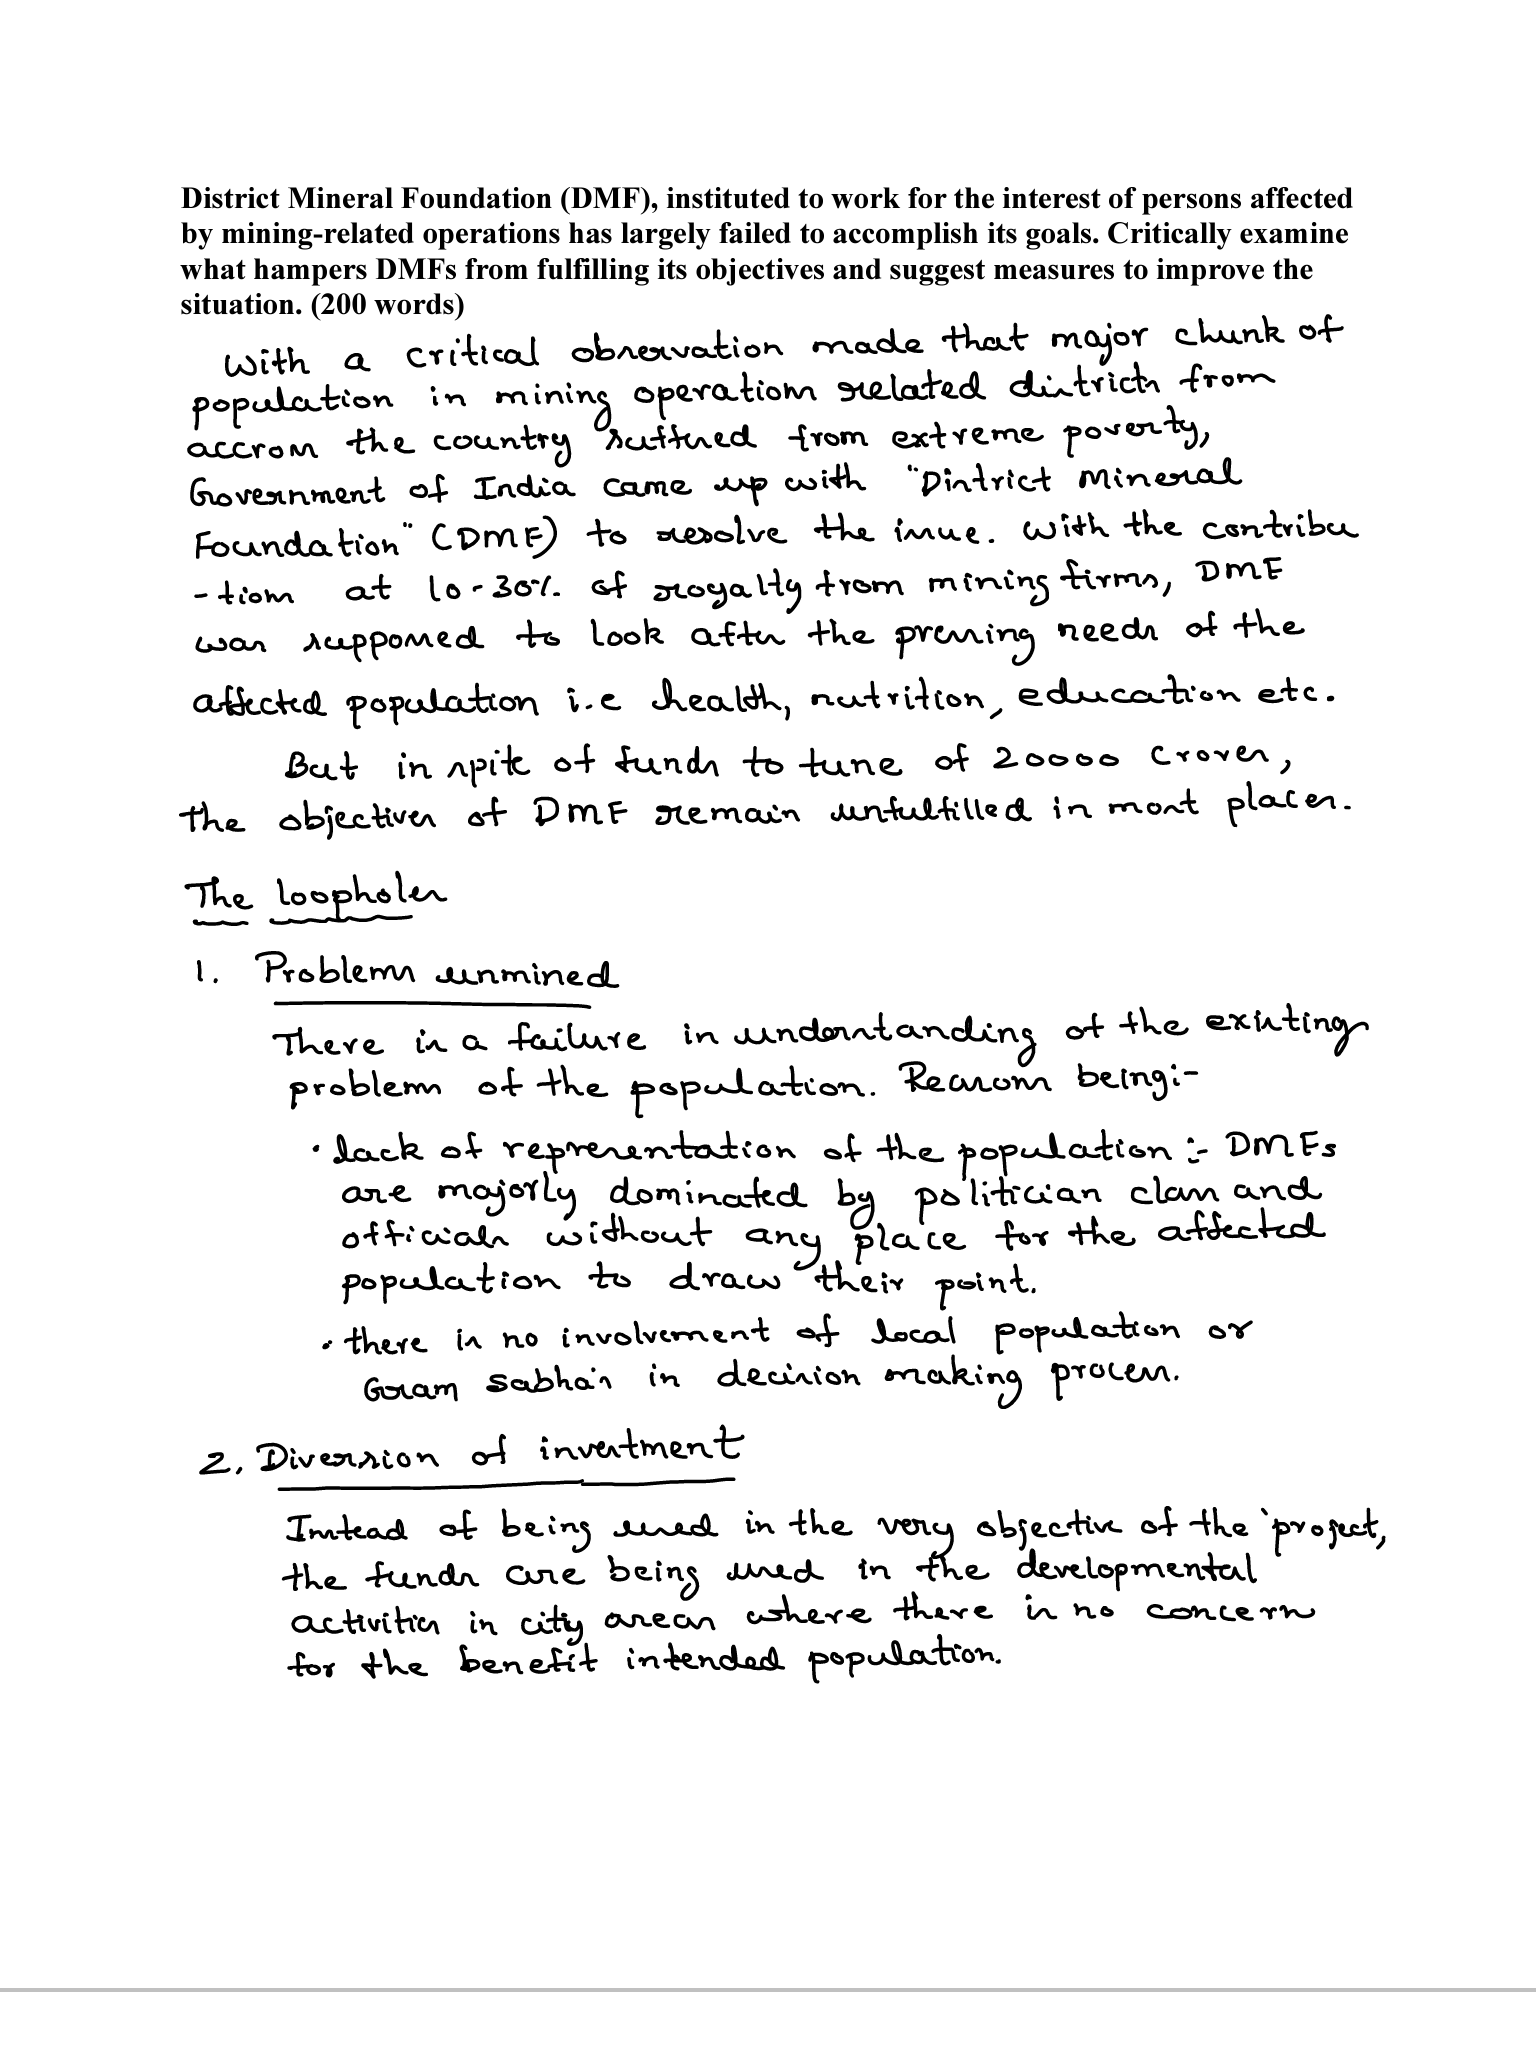 District Mineral Foundation (DMF), instituted to work for the interest of persons affected
by mining-related operations has largely failed to accomplish its goals. Critically examine
what hampers DMFs from fulfilling its objectives and suggest measures to improve the
situation. (200 words)
With a critical observation made that major chunk of
population in mining operations related districts from
accross the country suffered from extreme poverty,
Government of India came up with "District Mineral
Foundation" (DMF) to resolve the issue. With the contribu
-tions at 10-30% of royalty from mining firms, DMF
was supposed to look after the pressing needs of the
affected population i.e health, nutrition, education etc.
But in spite of funds to tune of 20000 Crores,
the objectives of DMF remain unfulfilled in most places.
The loopholes
1. Problems unmined
There is a failure in understanding of the existing
problems of the population. Reasons being:-
• lack of representation of the population :- DMFs
are majorly dominated by politician class and
officials without any place for the affected
population to draw their point.
• there is no involvement of local population or
Gram Sabha's in decision making process.
2. Diversion of investment
Instead of being used in the very objective of the project,
the funds are being used in the developmental
activities in city areas where there is no concern
for the benefit intended population.